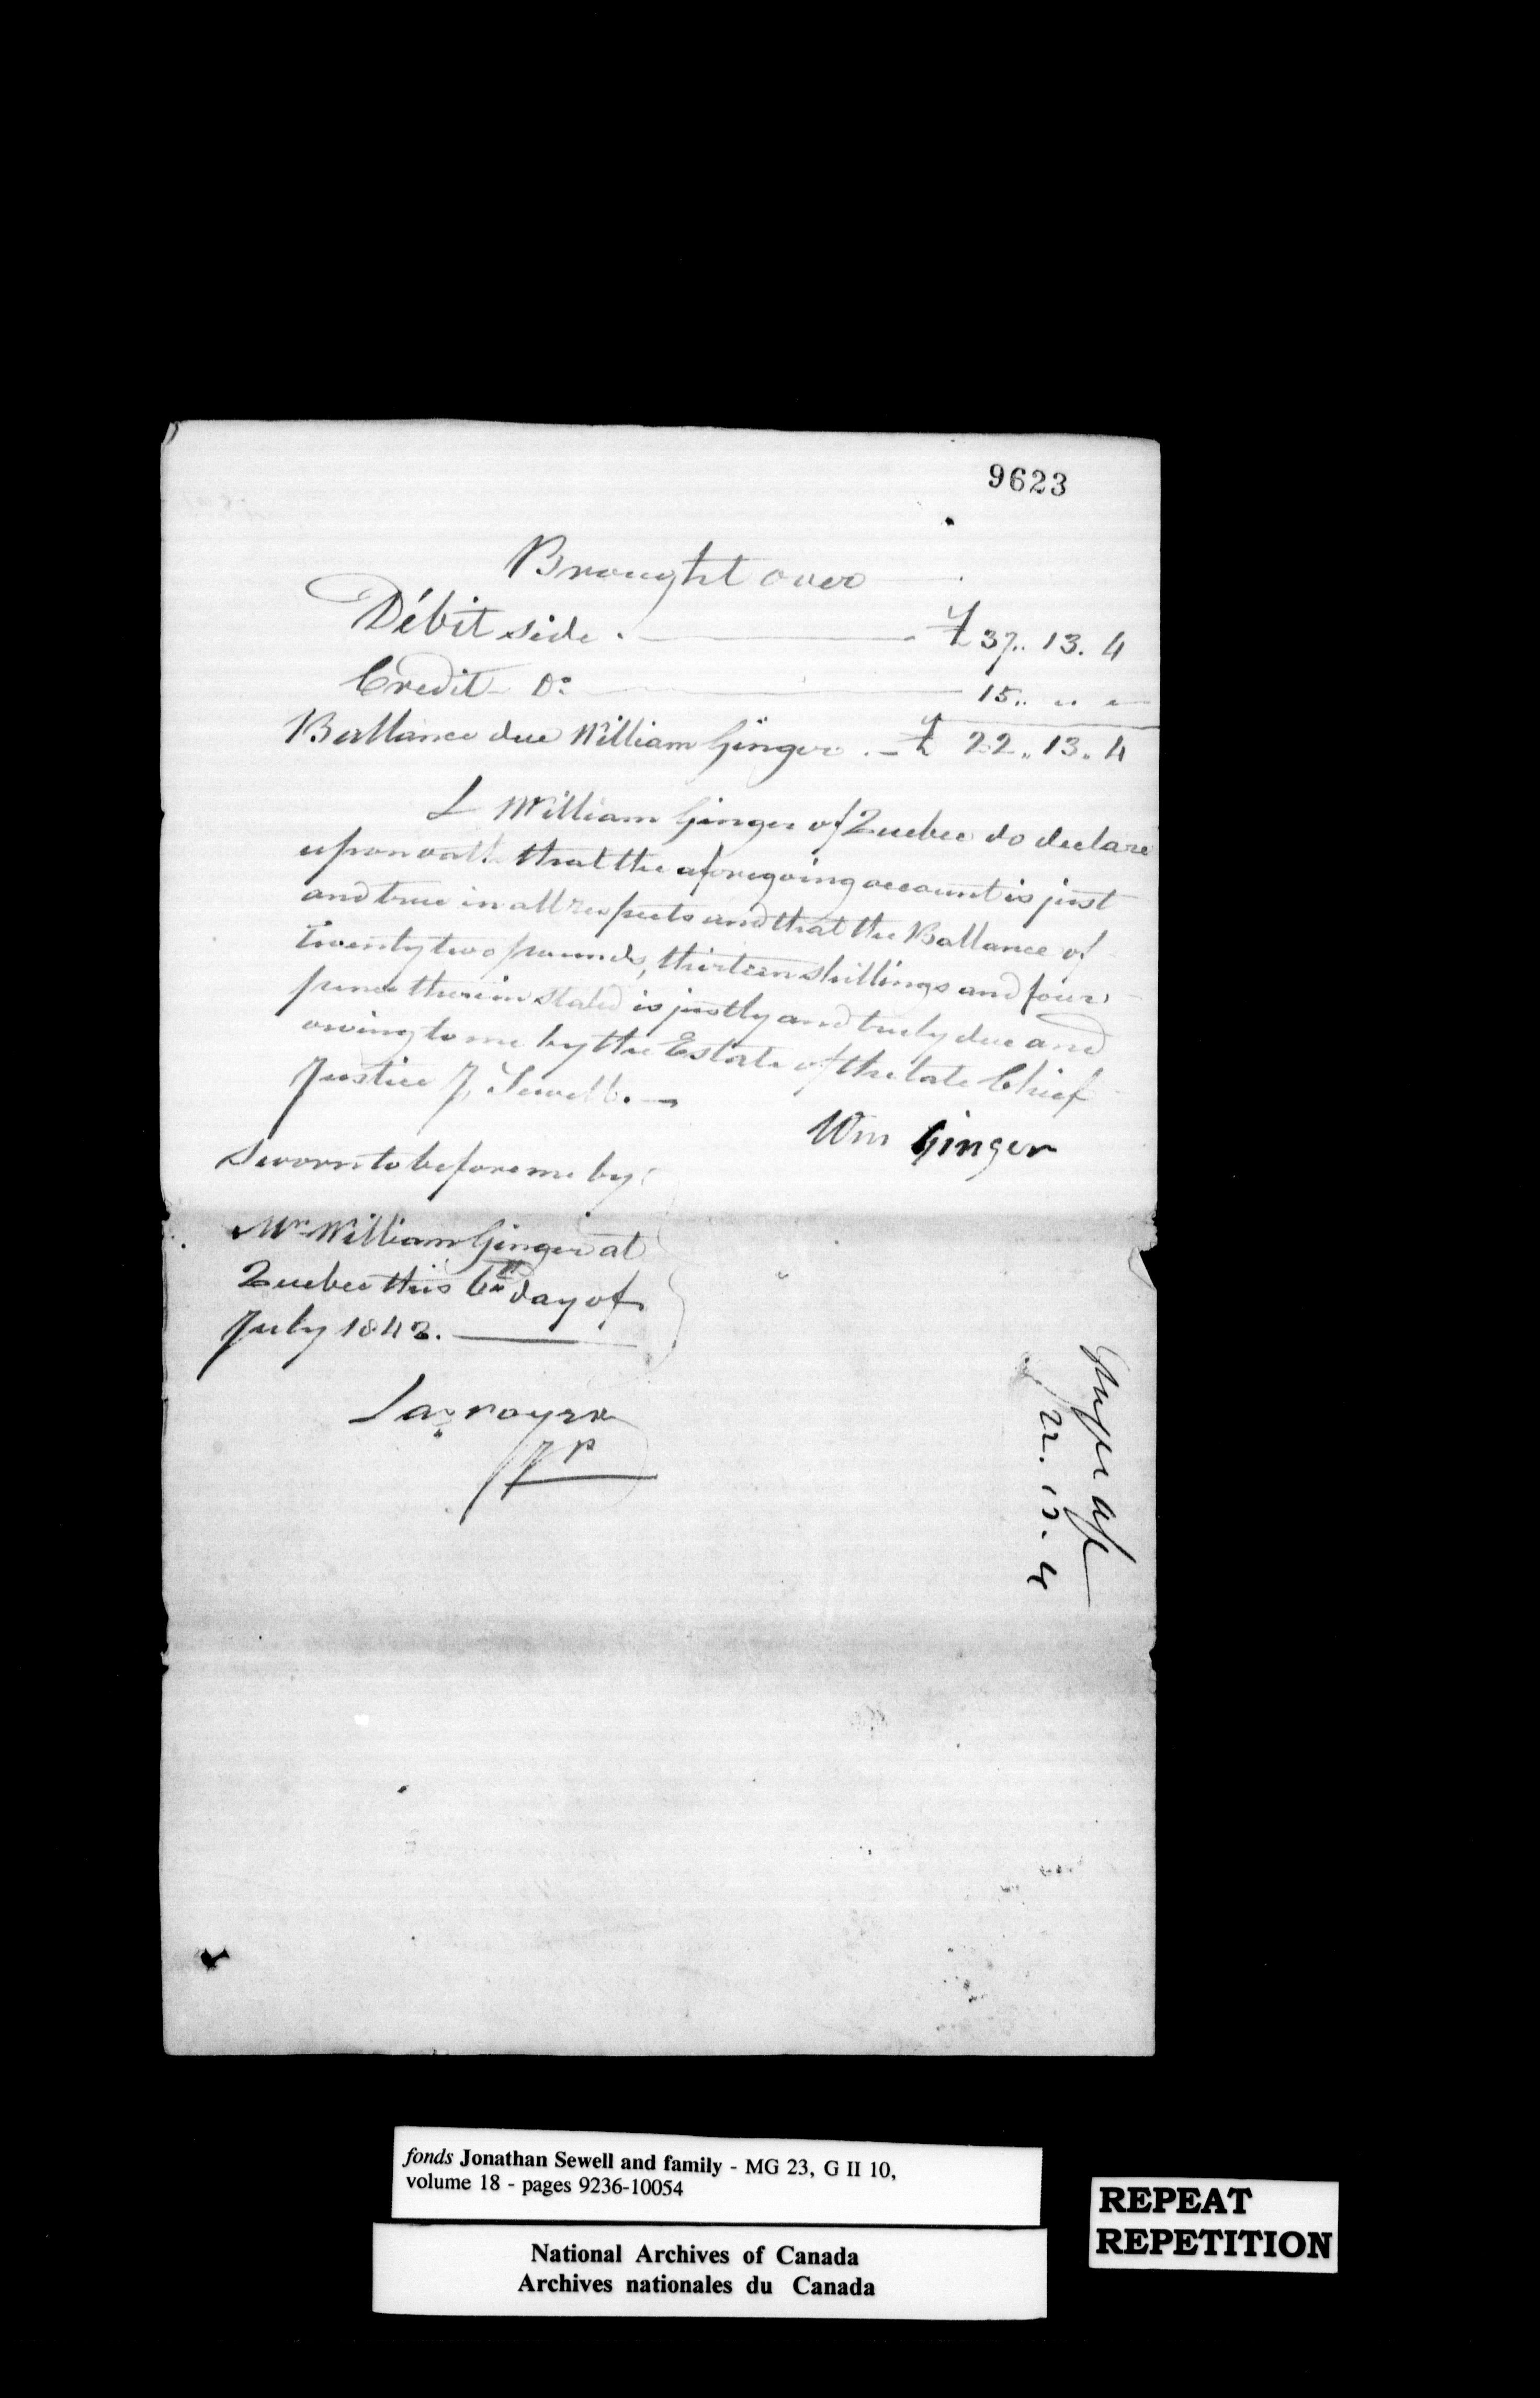 9623
Brought over
Débit side . £ 37.. 13. 4
Credit Do. 15.. .. ..
Ballance due William Ginger . £ 22.. 13.. 4
I William Ginger of Quebec do declare
upon oath that the aforegoing account is just
and true in all respects and that the Ballance of
Twenty two pounds, thirteen shillings and four
pence therein stated is justly and truly due and
owing to me by the Estate of the late Chief
Justice J. Sewell.
Wm Ginger
Sworn to before me by
Mr. William Ginger at
Quebec this 6th day of
July 1842.
JP
22. 13. 4
fonds Jonathan Sewell and family - MG 23, G II 10,
volume 18 - pages 9236-10054
National Archives of Canada
Archives nationales du Canada
REPEAT
REPETITION